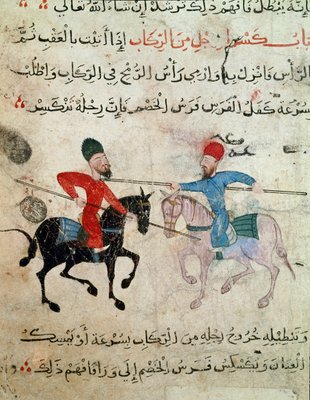 فإنه يبطل فافهم ذلك ترشد إن شاء الله تعالى
باب كسر الرجل من الركاب إذا أتيت بالعقب ثم
الرأس وانزل به وارمي رأس الرمح في الركاب واطلب
بسرعة كفل الفرس فرس الخصم فإن رجله تنكسر
وتبطيله خروج رجله من الركاب بسرعة أو يمسك
العنان فرس الخصم إلى ورا فافهم ذلك